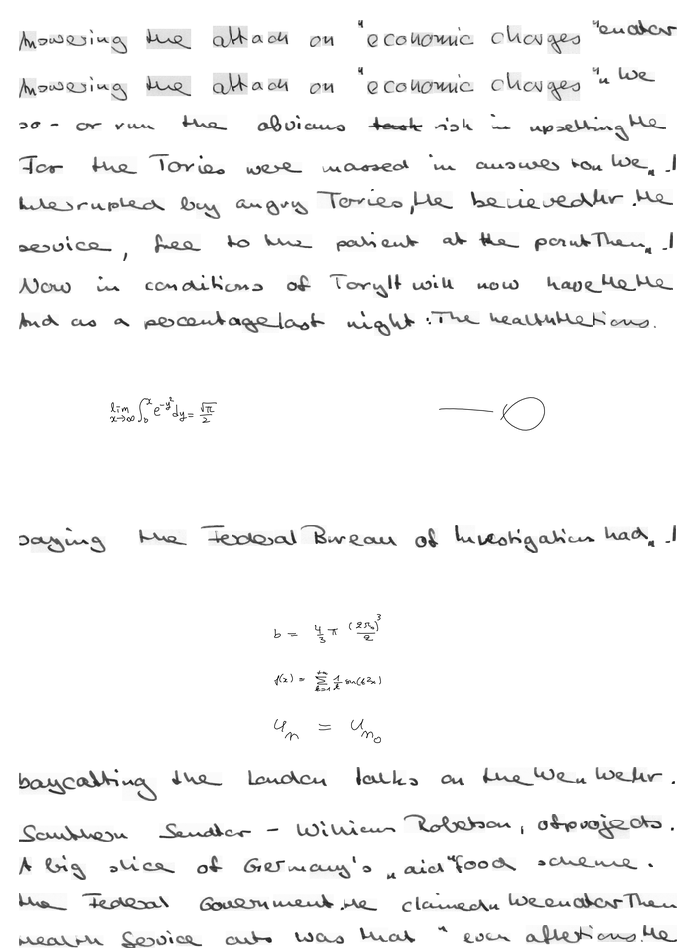 Answering the attack on "economic charges "enator
Answering the attack on "economic charges "" We
so - or run the obvious risk in upsetting He
For the Tories were massed in answer ton We" -I
Interrupted by angry Tories, He believed Mr. He
service, free to the patient at the point Then" -I
Now in conditions of Tory It will now have He He
And as a percentage last night : The health He tions.
lim x→∞ ∫₀ˣ e^{-y²} dy = √π/2
saying the Federal Bureau of Investigation had" -I
b = 4/3 π (2π₀)³/2
f(x) = Σ_{k=1}^{+∞} 1/k sin(k²x)
u_n = u_{n₀}
boycotting the London talks on the We" We Mr.
Southern Senator - Williams Robertson, of projects.
A big slice of Germany's "aid" food scheme.
the Federal Government. He claimed" We enator Then
Health Service cuts was that " even affections, He